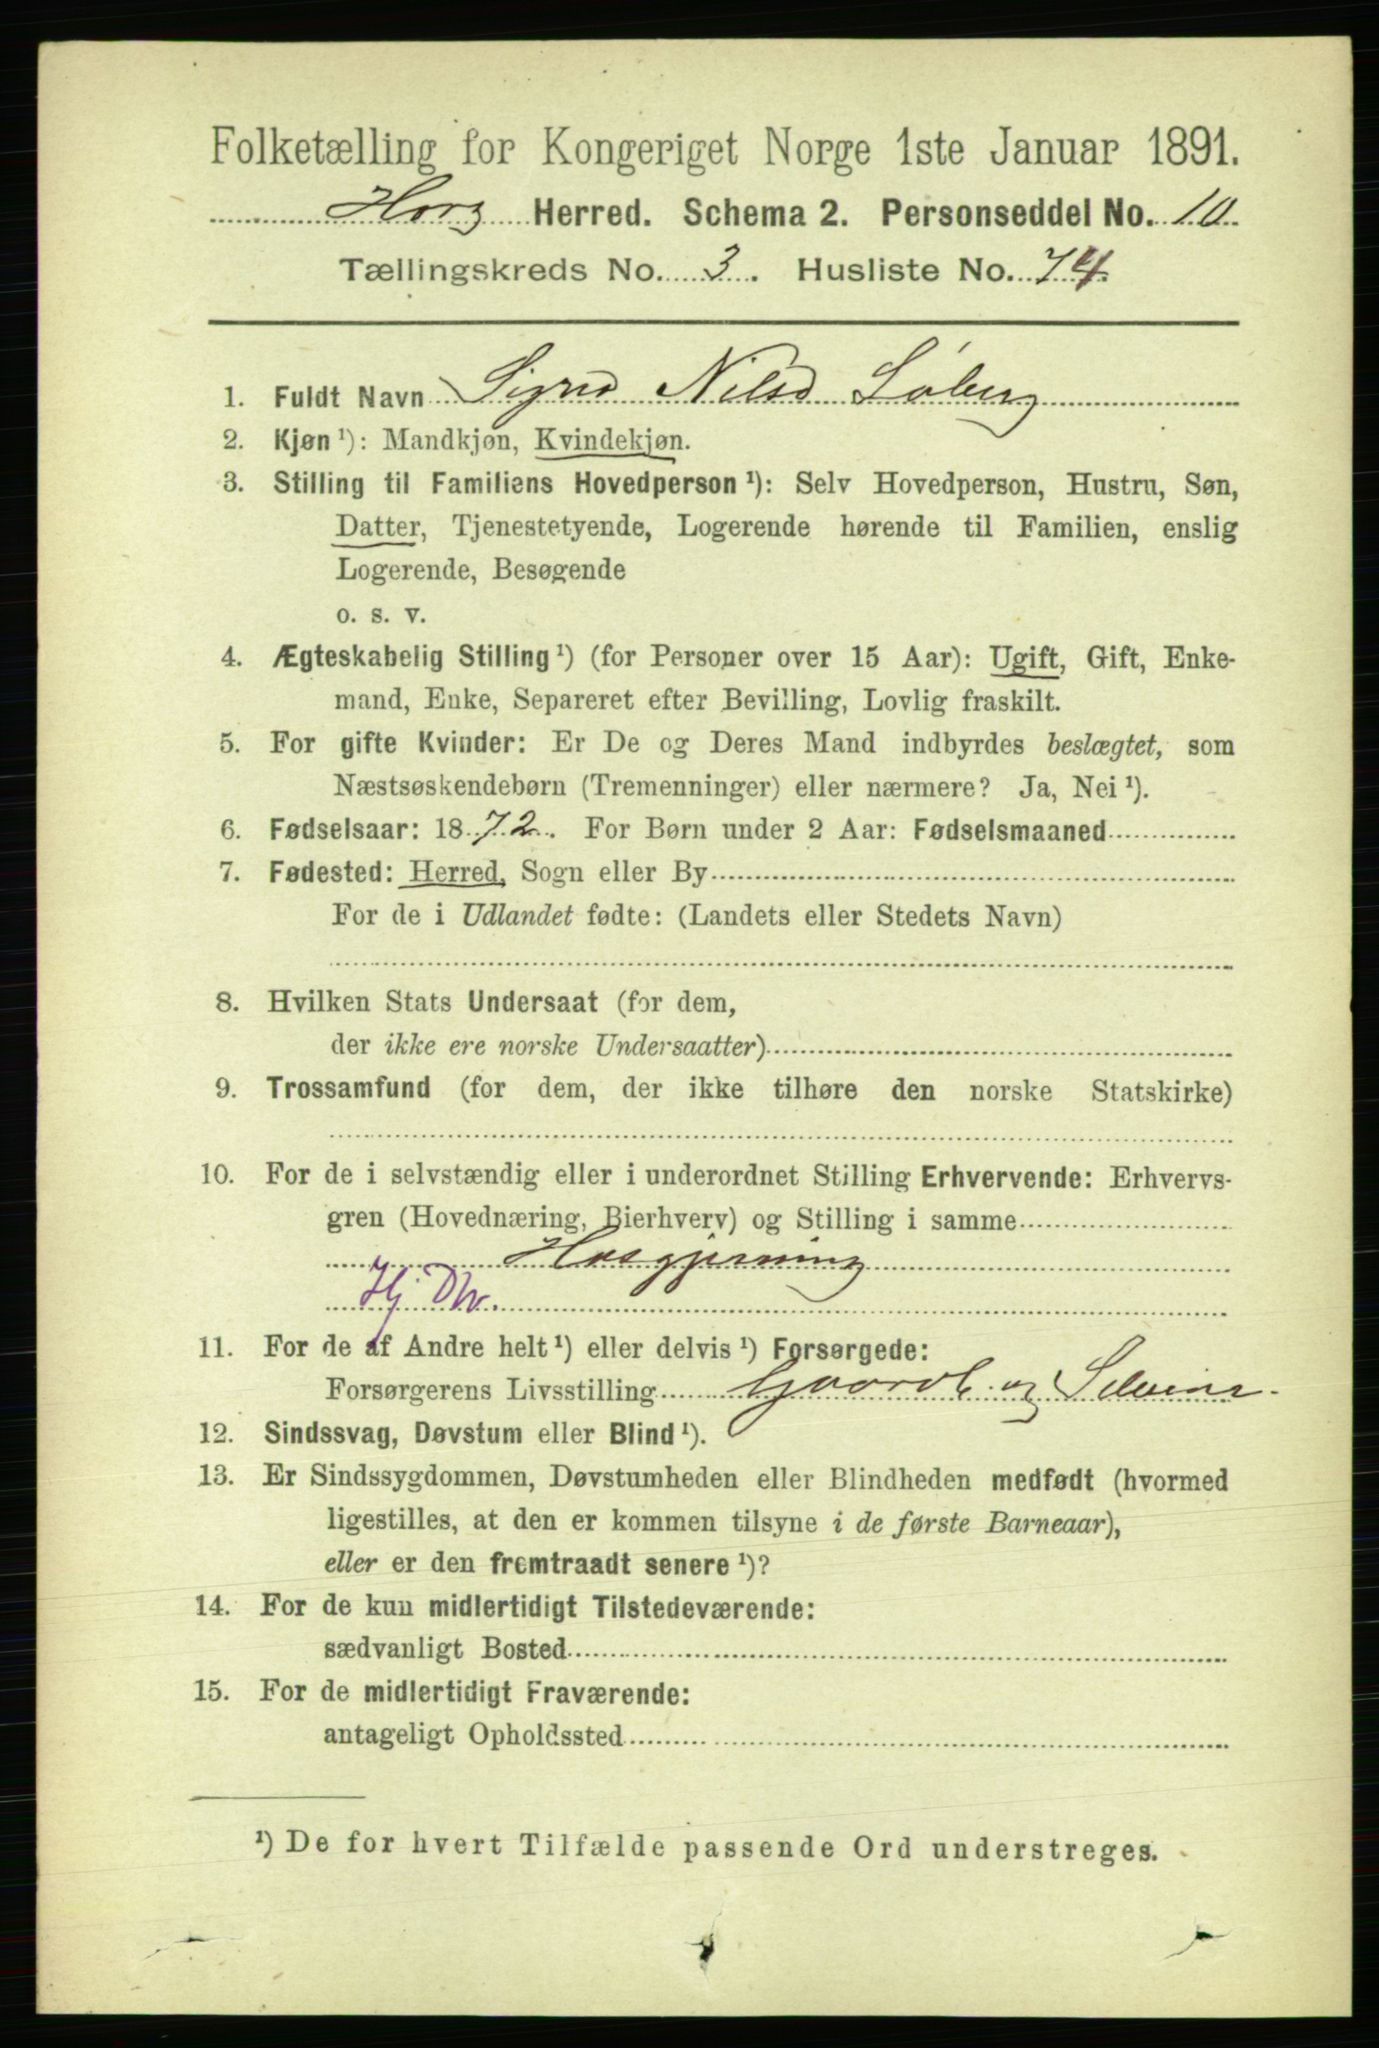 Folketælling for Kongeriget Norge 1ste Januar 1891.
Horg Herred. Schema 2. Personseddel No. 10.
Tællingskreds No. 3. Husliste No. 74.
1. Fuldt Navn Sigrid Nilsd Søberg
2. Kjøn ¹): Mandkjøn, Kvindekjøn.
3. Stilling til Familiens Hovedperson ¹): Selv Hovedperson, Hustru, Søn,
Datter, Tjenestetyende, Logerende hørende til Familien, enslig
Logerende, Besøgende
o. s. v.
4. Ægteskabelig Stilling ¹) (for Personer over 15 Aar): Ugift, Gift, Enke-
mand, Enke, Separeret efter Bevilling, Lovlig fraskilt.
5. For gifte Kvinder: Er De og Deres Mand indbyrdes beslægtet, som
Næstsøskendebørn (Tremenninger) eller nærmere? Ja, Nei ¹).
6. Fødselsaar: 1872. For Børn under 2 Aar: Fødselsmaaned
7. Fødested: Herred, Sogn eller By
For de i Udlandet fødte: (Landets eller Stedets Navn)
8. Hvilken Stats Undersaat (for dem,
der ikke ere norske Undersaatter)
9. Trossamfund (for dem, der ikke tilhøre den norske Statskirke)
10. For de i selvstændig eller i underordnet Stilling Erhvervende: Erhvervs-
gren (Hovednæring, Bierhverv) og Stilling i samme
Husgjerning
Hj
11. For de af Andre helt ¹) eller delvis ¹) Forsørgede:
Forsørgerens Livsstilling Gaardb. og Selveier.
12. Sindssvag, Døvstum eller Blind ¹).
13. Er Sindssygdommen, Døvstumheden eller Blindheden medfødt (hvormed
ligestilles, at den er kommen tilsyne i de første Barneaar),
eller er den fremtraadt senere ¹)?
14. For de kun midlertidigt Tilstedeværende:
sædvanligt Bosted
15. For de midlertidigt Fraværende:
antageligt Opholdssted
¹) De for hvert Tilfælde passende Ord understreges.